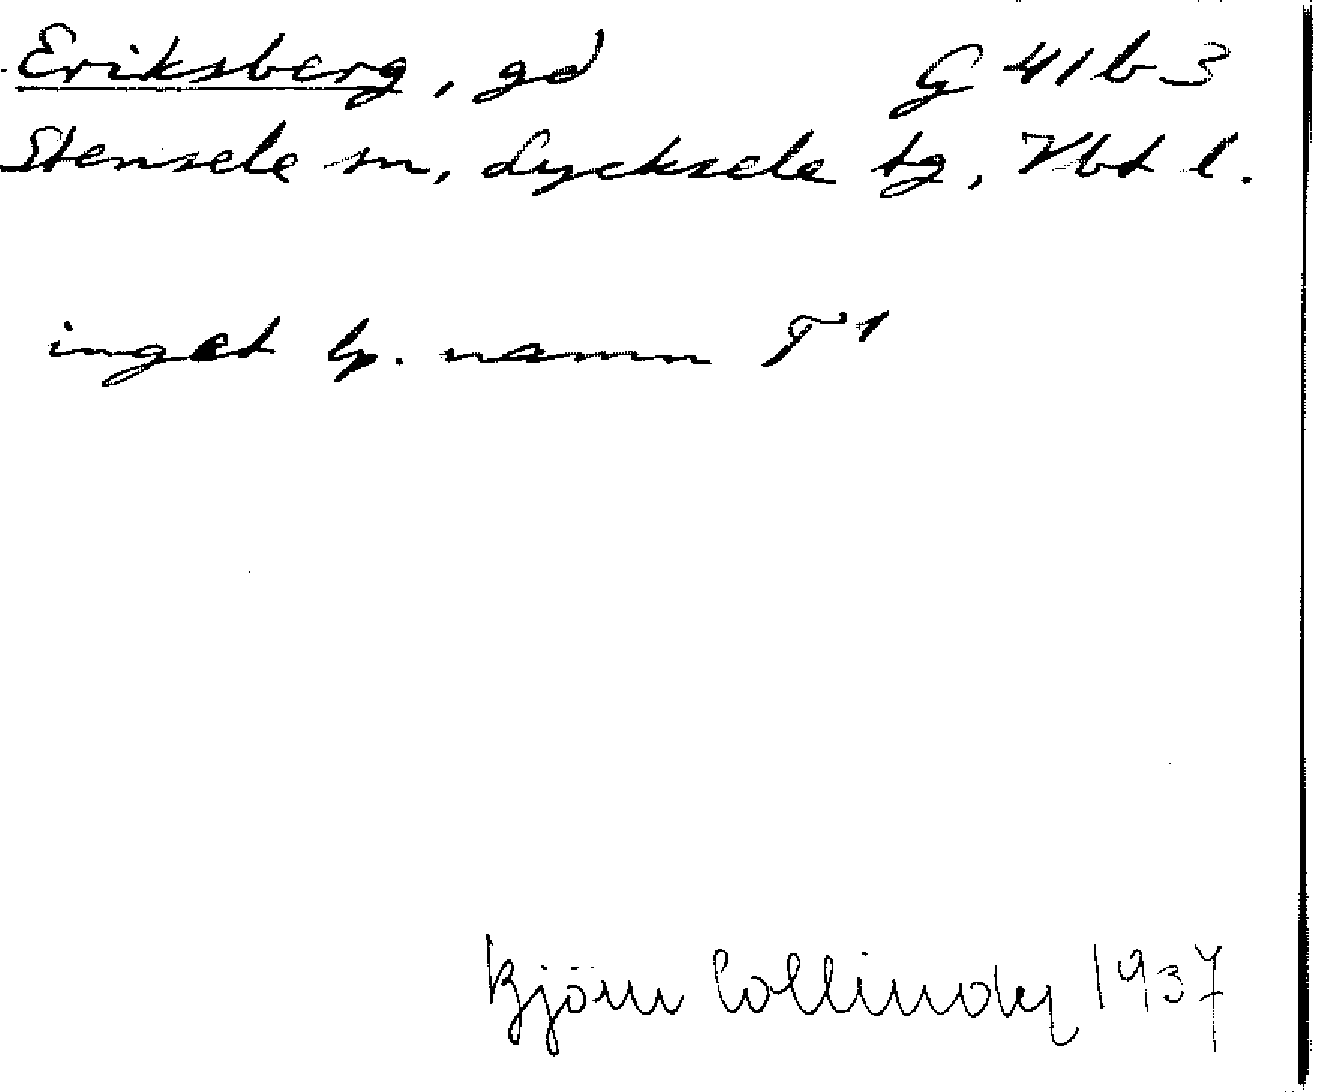 Eriksberg, gd G 41 b 3
Stensele sn, Lycksele tg, Vbt l.
inget lp. namn T¹
Björn Collinder 1937